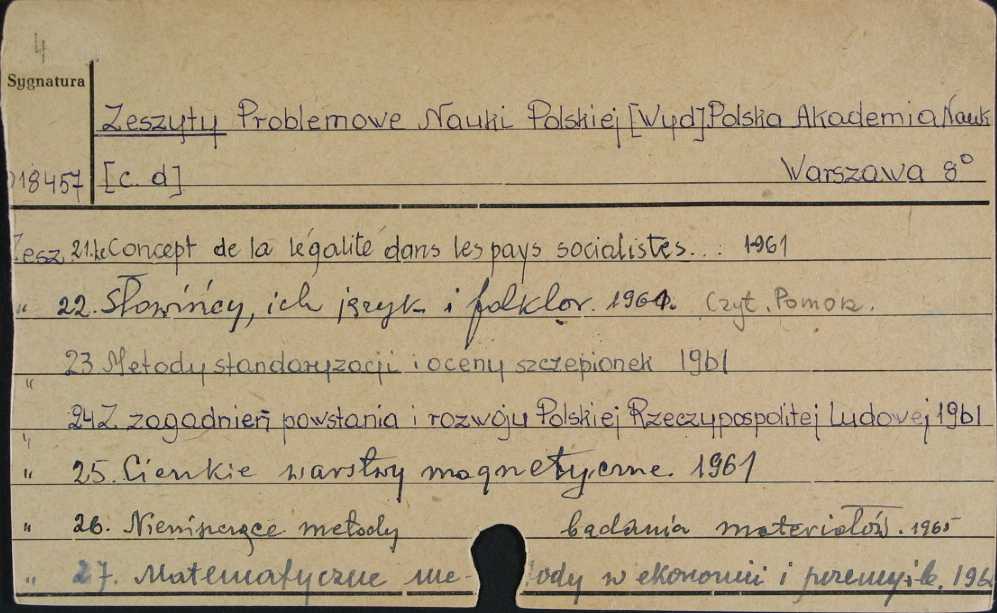 4
Sygnatura
Zeszyty Problemowe Nauki Polskiej [Wyd] Polska Akademia Nauk
18457 [c. d] Warszawa 8°
Zesz 21. Le Concept de la légalité dans les pays socialistes... 1961
" 22. Słowińcy, ich język i folklor. 1961. Czyt. Pomorz.
" 23 Metody standaryzacji i oceny szczepionek 1961
" 24 Z zagadnień powstania i rozwoju Polskiej Rzeczypospolitej Ludowej 1961
" 25. Cienkie warstwy magnetyczne. 1961
" 26. Nieniszczące metody badania materiałów. 1965
" 27. Matematyczne me- tody w ekonomii i przemyśle.